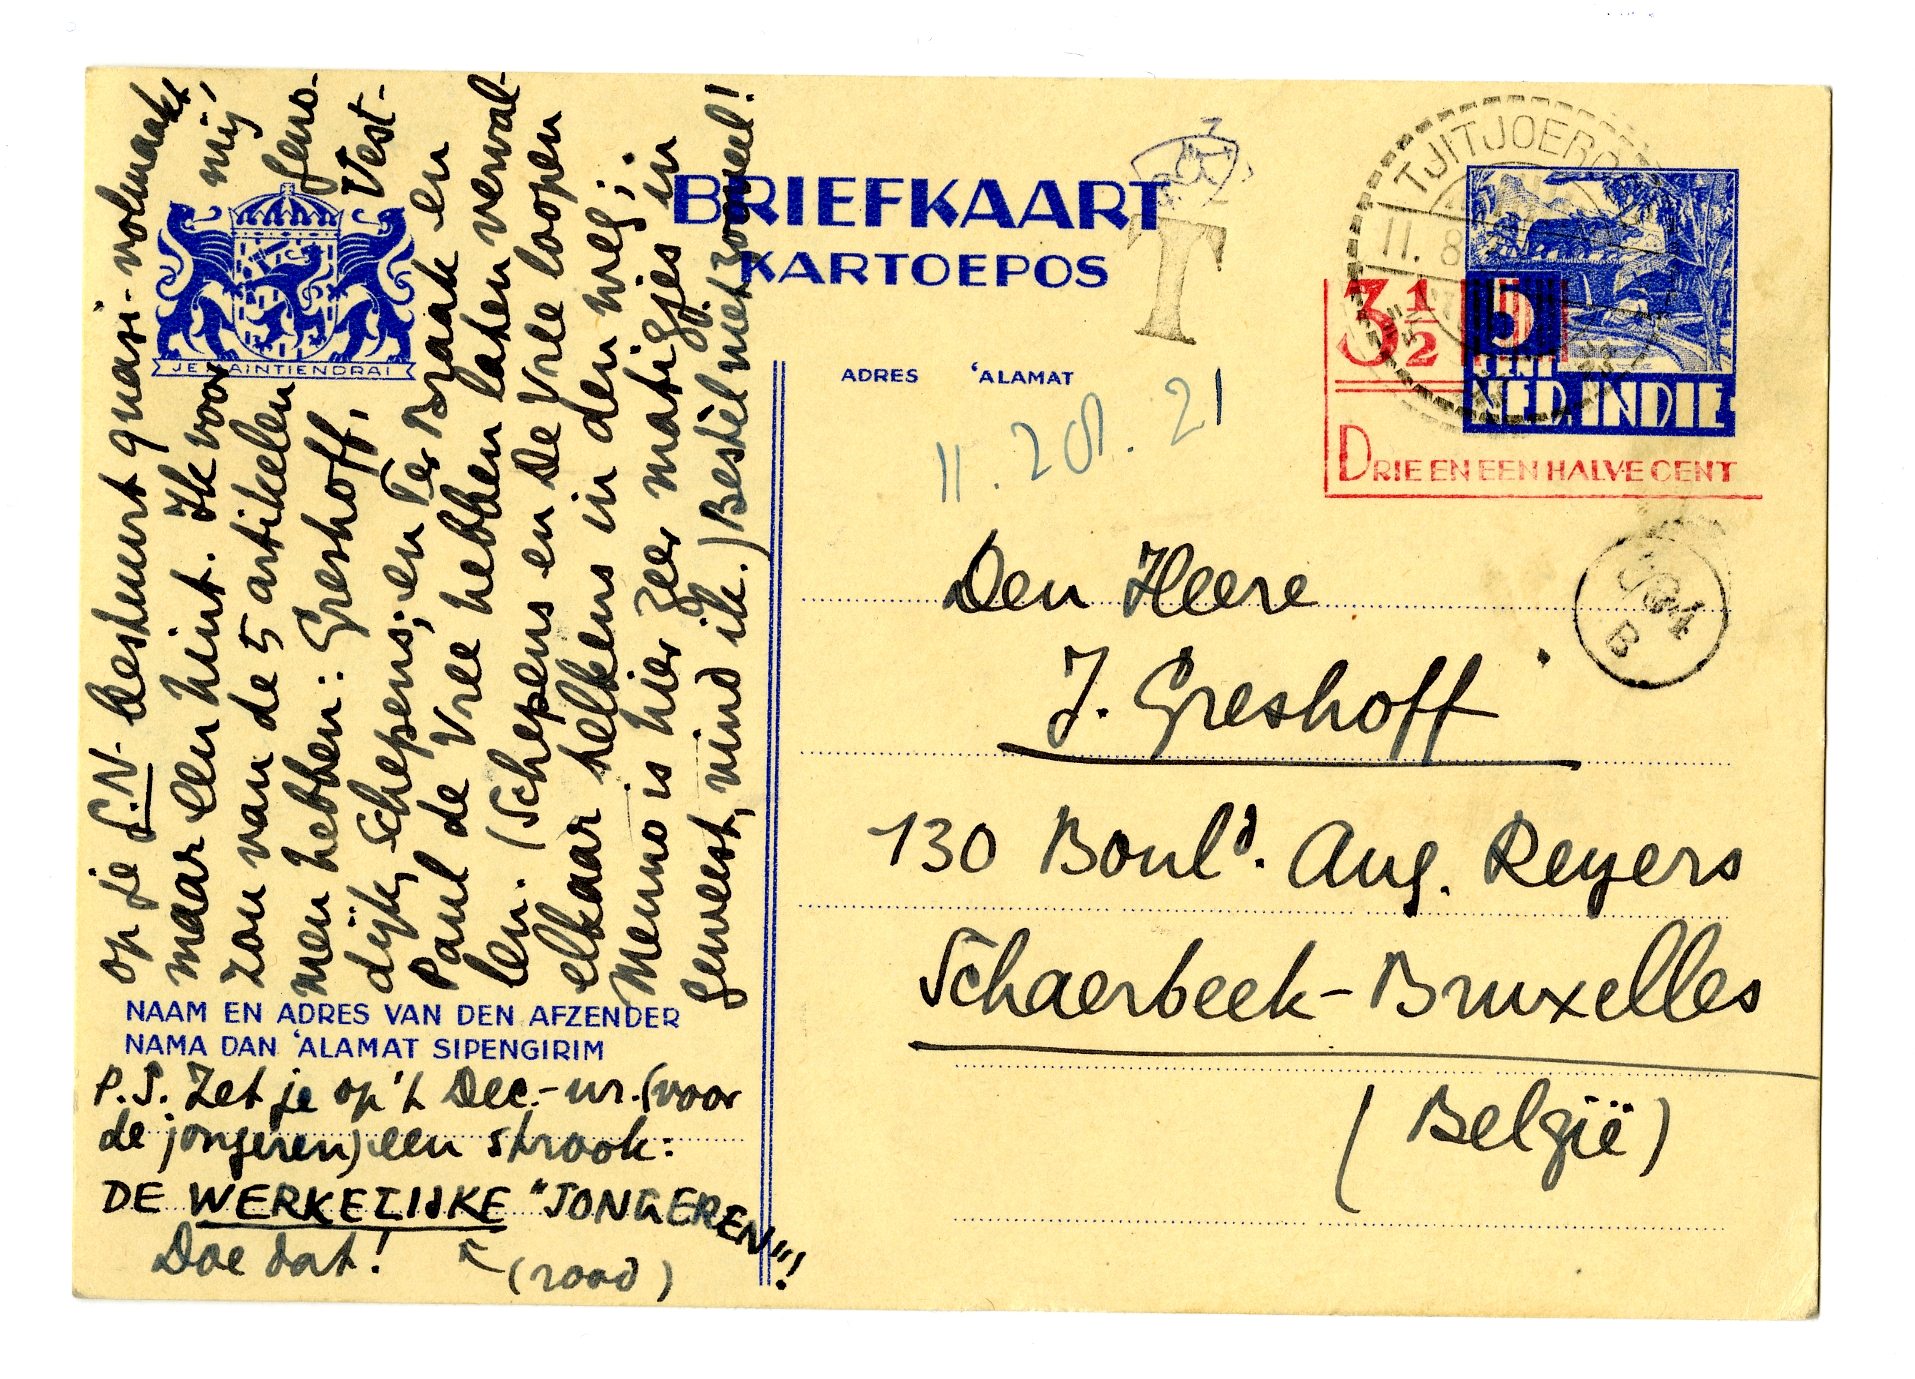 op je G.N. bestuurt quasi-volmaakt
maar een hint. Ik voor mij,
zou van de 5 artikelen geno-
men hebben: Greshoff, Vest-
dijk, Schepens; en Ter Braak en
Paul de Vree hebben laten verval-
len. (Schepens en De Vree loopen
elkaar telkens in den weg;
Menno is hier zeer matigjes in
geweest, vind ik.) Bestèl niet zooveel!
JE MAINTIENDRAI
NAAM EN ADRES VAN DEN AFZENDER
NAMA DAN 'ALAMAT SIPENGIRIM
P.S. Zet je op 't Dec.-nr. (voor
de jongeren) een strook:
DE WERKELIJKE "JONGEREN"!!
Doe dat!
(rood)
BRIEFKAART
KARTOEPOS
T
ADRES 'ALAMAT
TJITJOEROE
11. 8
3½
5
CENT
NED. INDIE
DRIE EN EEN HALVE CENT
Den Heere
J. Greshoff
130 Boul<sup>d</sup>. Aug. Reyers
Schaerbeek-Bruxelles
(België)
B